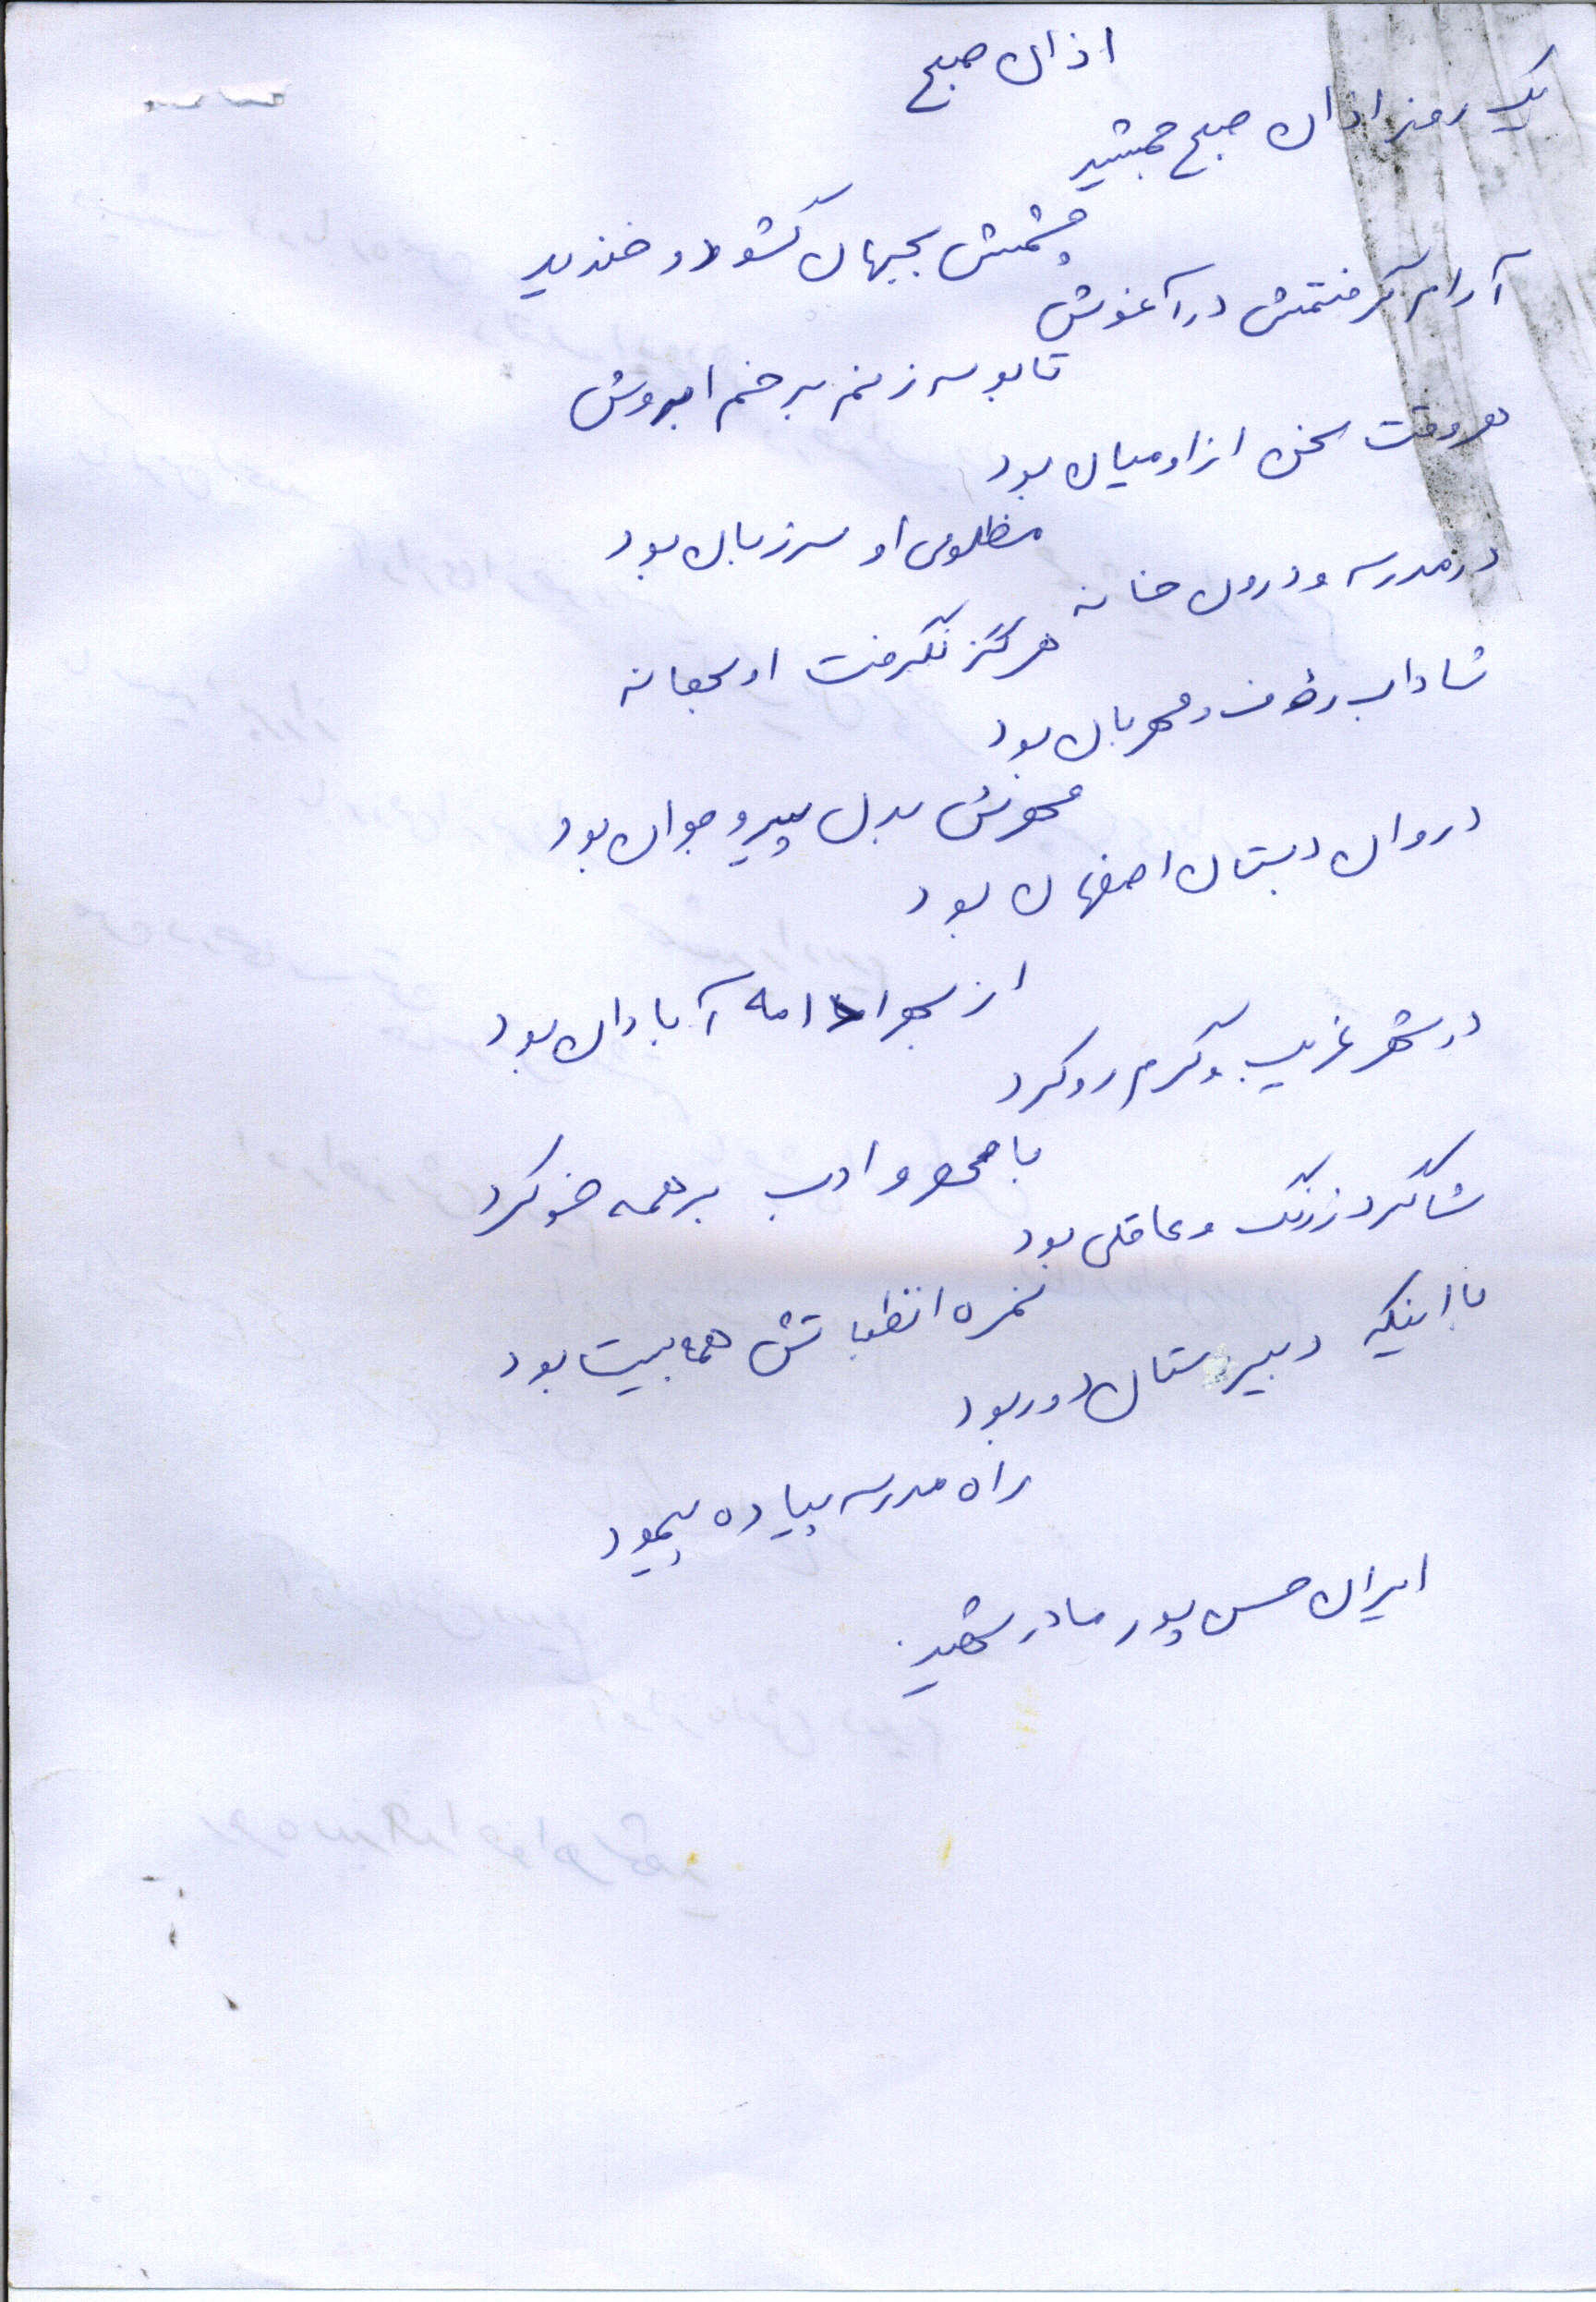 اذان صبح
یک روز اذان صبح جمشید
چشمش بجهان گشود و خندید
آرام گرفتمش در آغوش
تا بوسه زنم بر خم ابروش
هر وقت سخن از او میان بود
مظلومی او سر زبان بود
در مدرسه و درون خانه
هرگز نگرفت او بهانه
شاداب رئوف و مهربان بود
مهرش بدل پیر و جوان بود
دوران دبستان اصفهان بود
از بهر ادامه آبادان بود
در شهر غریب و گرم رو کرد
با مهر و ادب بر همه خو کرد
شاگرد زرنگ و عاقلی بود
نمره انظباتش همه بیست بود
با اینکه دبیرستان دور بود
راه مدرسه پیاده پیمود
ایران حسن پور مادر شهید